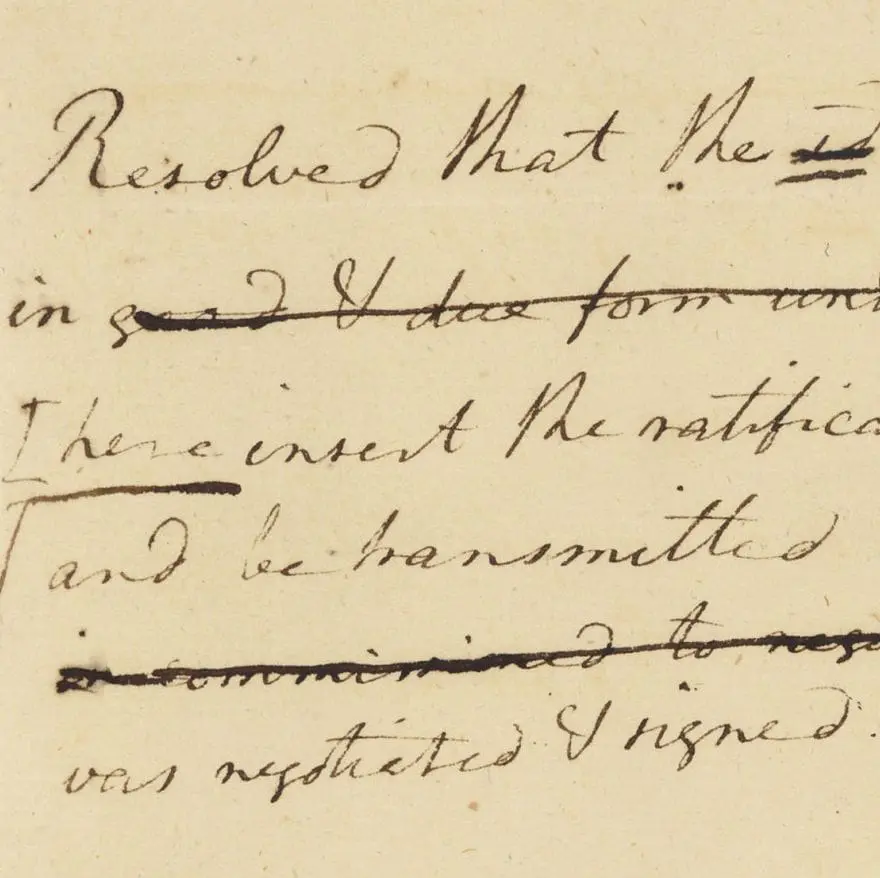 Resolved that the
in good & due form
[here insert the ratifica
and be transmitted
commissioned to nego
was negotiated & signed.